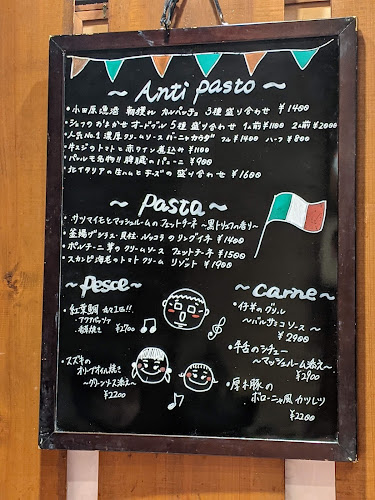 ～Anti pasto～
・小田原漁港 朝獲れ カルパッチョ 3種盛り合わせ ¥1400
・シェフのおまかせオードブル5種盛り合わせ 1人前¥1100 2人前¥2000
・人気No.1 濃厚クリームソース バーニャカウダ フル¥1400 ハーフ¥800
・牛スジのトマトと赤ワイン煮込み ¥1100
・パレルモ名物!! 脾臓のパニーニ ¥900
・北イタリアの生ハムとチーズの盛り合わせ ¥1600
～Pasta～
・サツマイモとマッシュルームのフェットチーネ～黒トリュフの香り～
・釜揚げシラス・貝柱・ルッコラのリングイネ ¥1400
・ポルチーニ茸のクリームソース フェットチーネ ¥1500
・スカンピ海老のトマトクリーム リゾット ¥1900
～Pesce～
・紅葉鯛
アクアパッツァ
香草焼き ¥2700
・スズキの
オリーブオイル焼き
～グリーンソース添え～
¥2200
～Carne～
・仔羊のグリル
～バルサミコソース～
¥2900
・牛舌のシチュー
～マッシュルーム添え～
¥2900
・厚木豚の
ボローニャ風カツレツ
¥2200